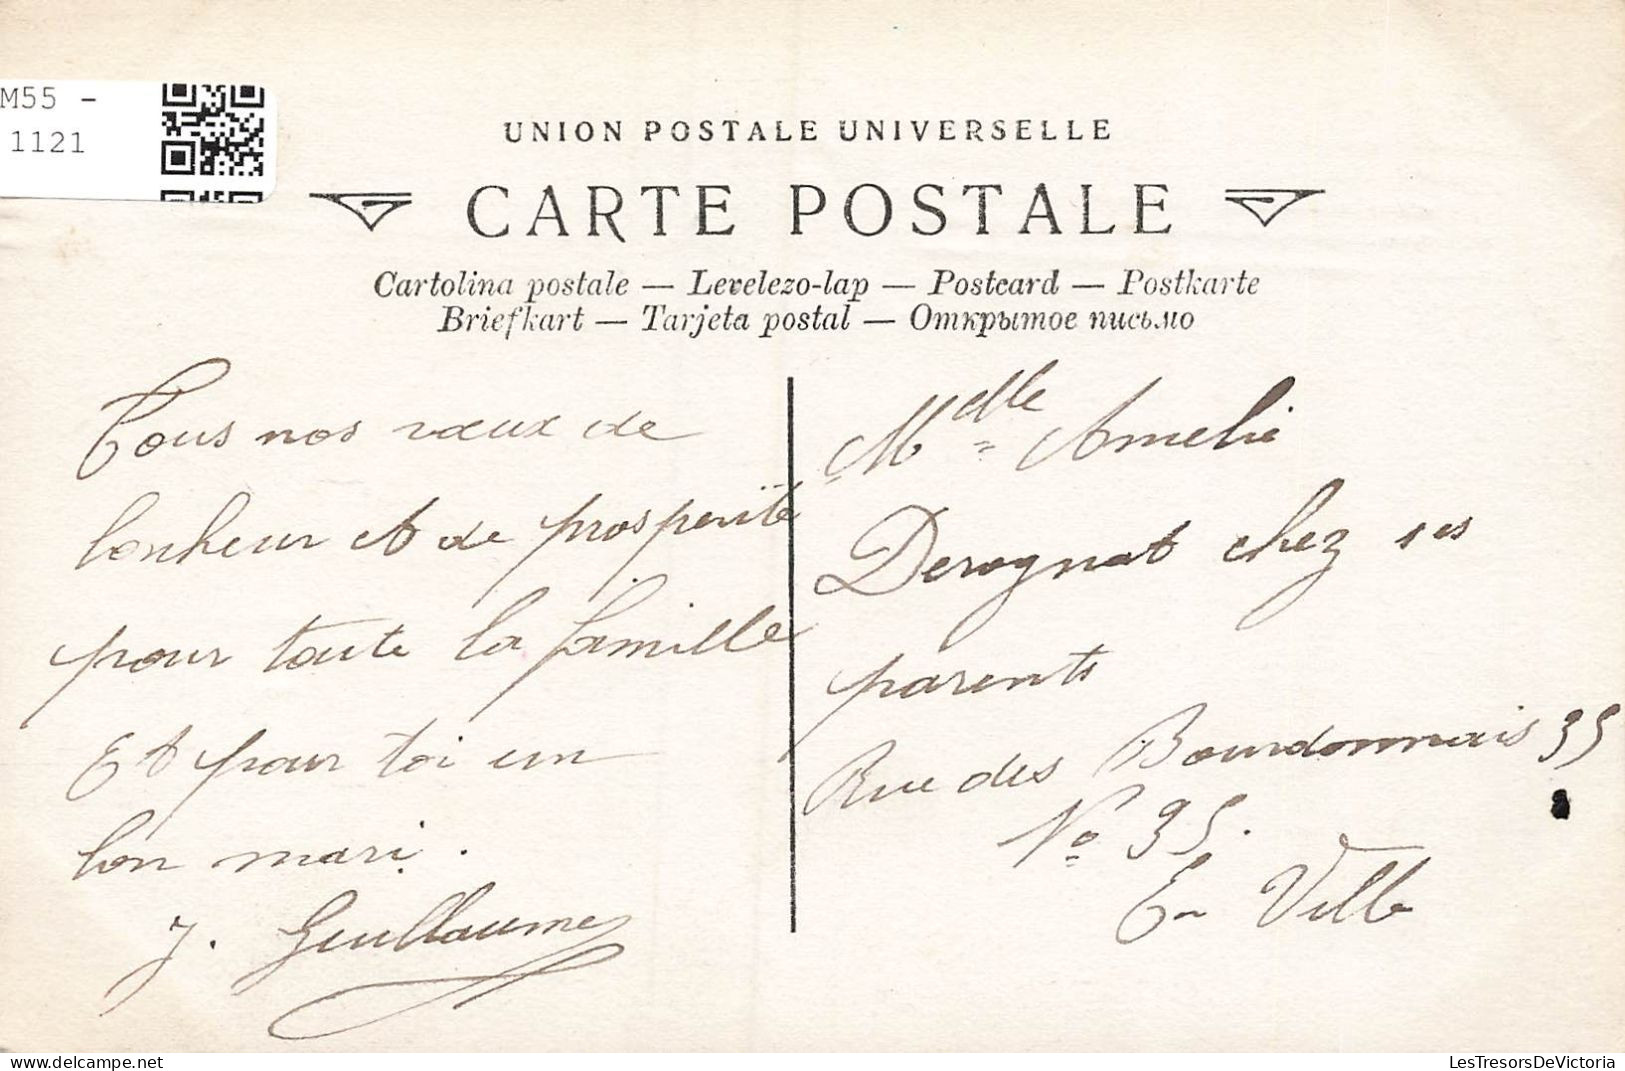 M55 -
1121
UNION POSTALE UNIVERSELLE
CARTE POSTALE
Cartolina postale — Levelezo-lap — Postcard — Postkarte
Briefkart — Tarjeta postal — Открытое письмо
Tous nos vœux de
bonheur et de prosperité
pour toute la famille
Et pour toi un
bon mari.
J. Guillaume
Melle Amelie
Derognat chez ses
parents
Rue des Bourdonnais 35
No 35.
En Ville
delcampe.net
LesTresorsDeVictoria